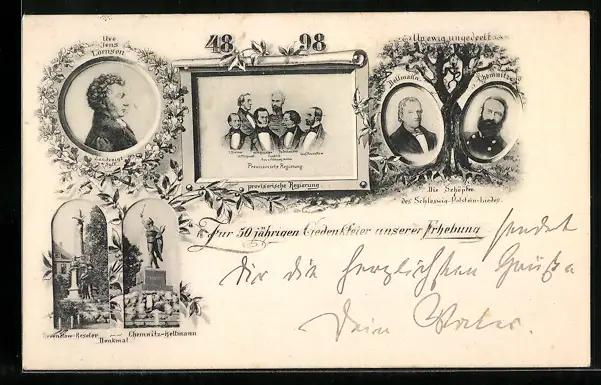 Uwe
Jens
Lornsen
Landvogt
a. Sylt
48 98
Provisorische Regierung
provisorische Regierung
Up ewig ungedeelt
Bellmann
Chemnitz
Die Schöpfer
des Schleswig-Holstein-Liedes.
Zur 50 jährigen Gedenkfeier unserer Erhebung
sendet
Dir die herzlichsten Grüße
Dein
Reventlow-Beseler
Denkmal
Chemnitz-Bellmann